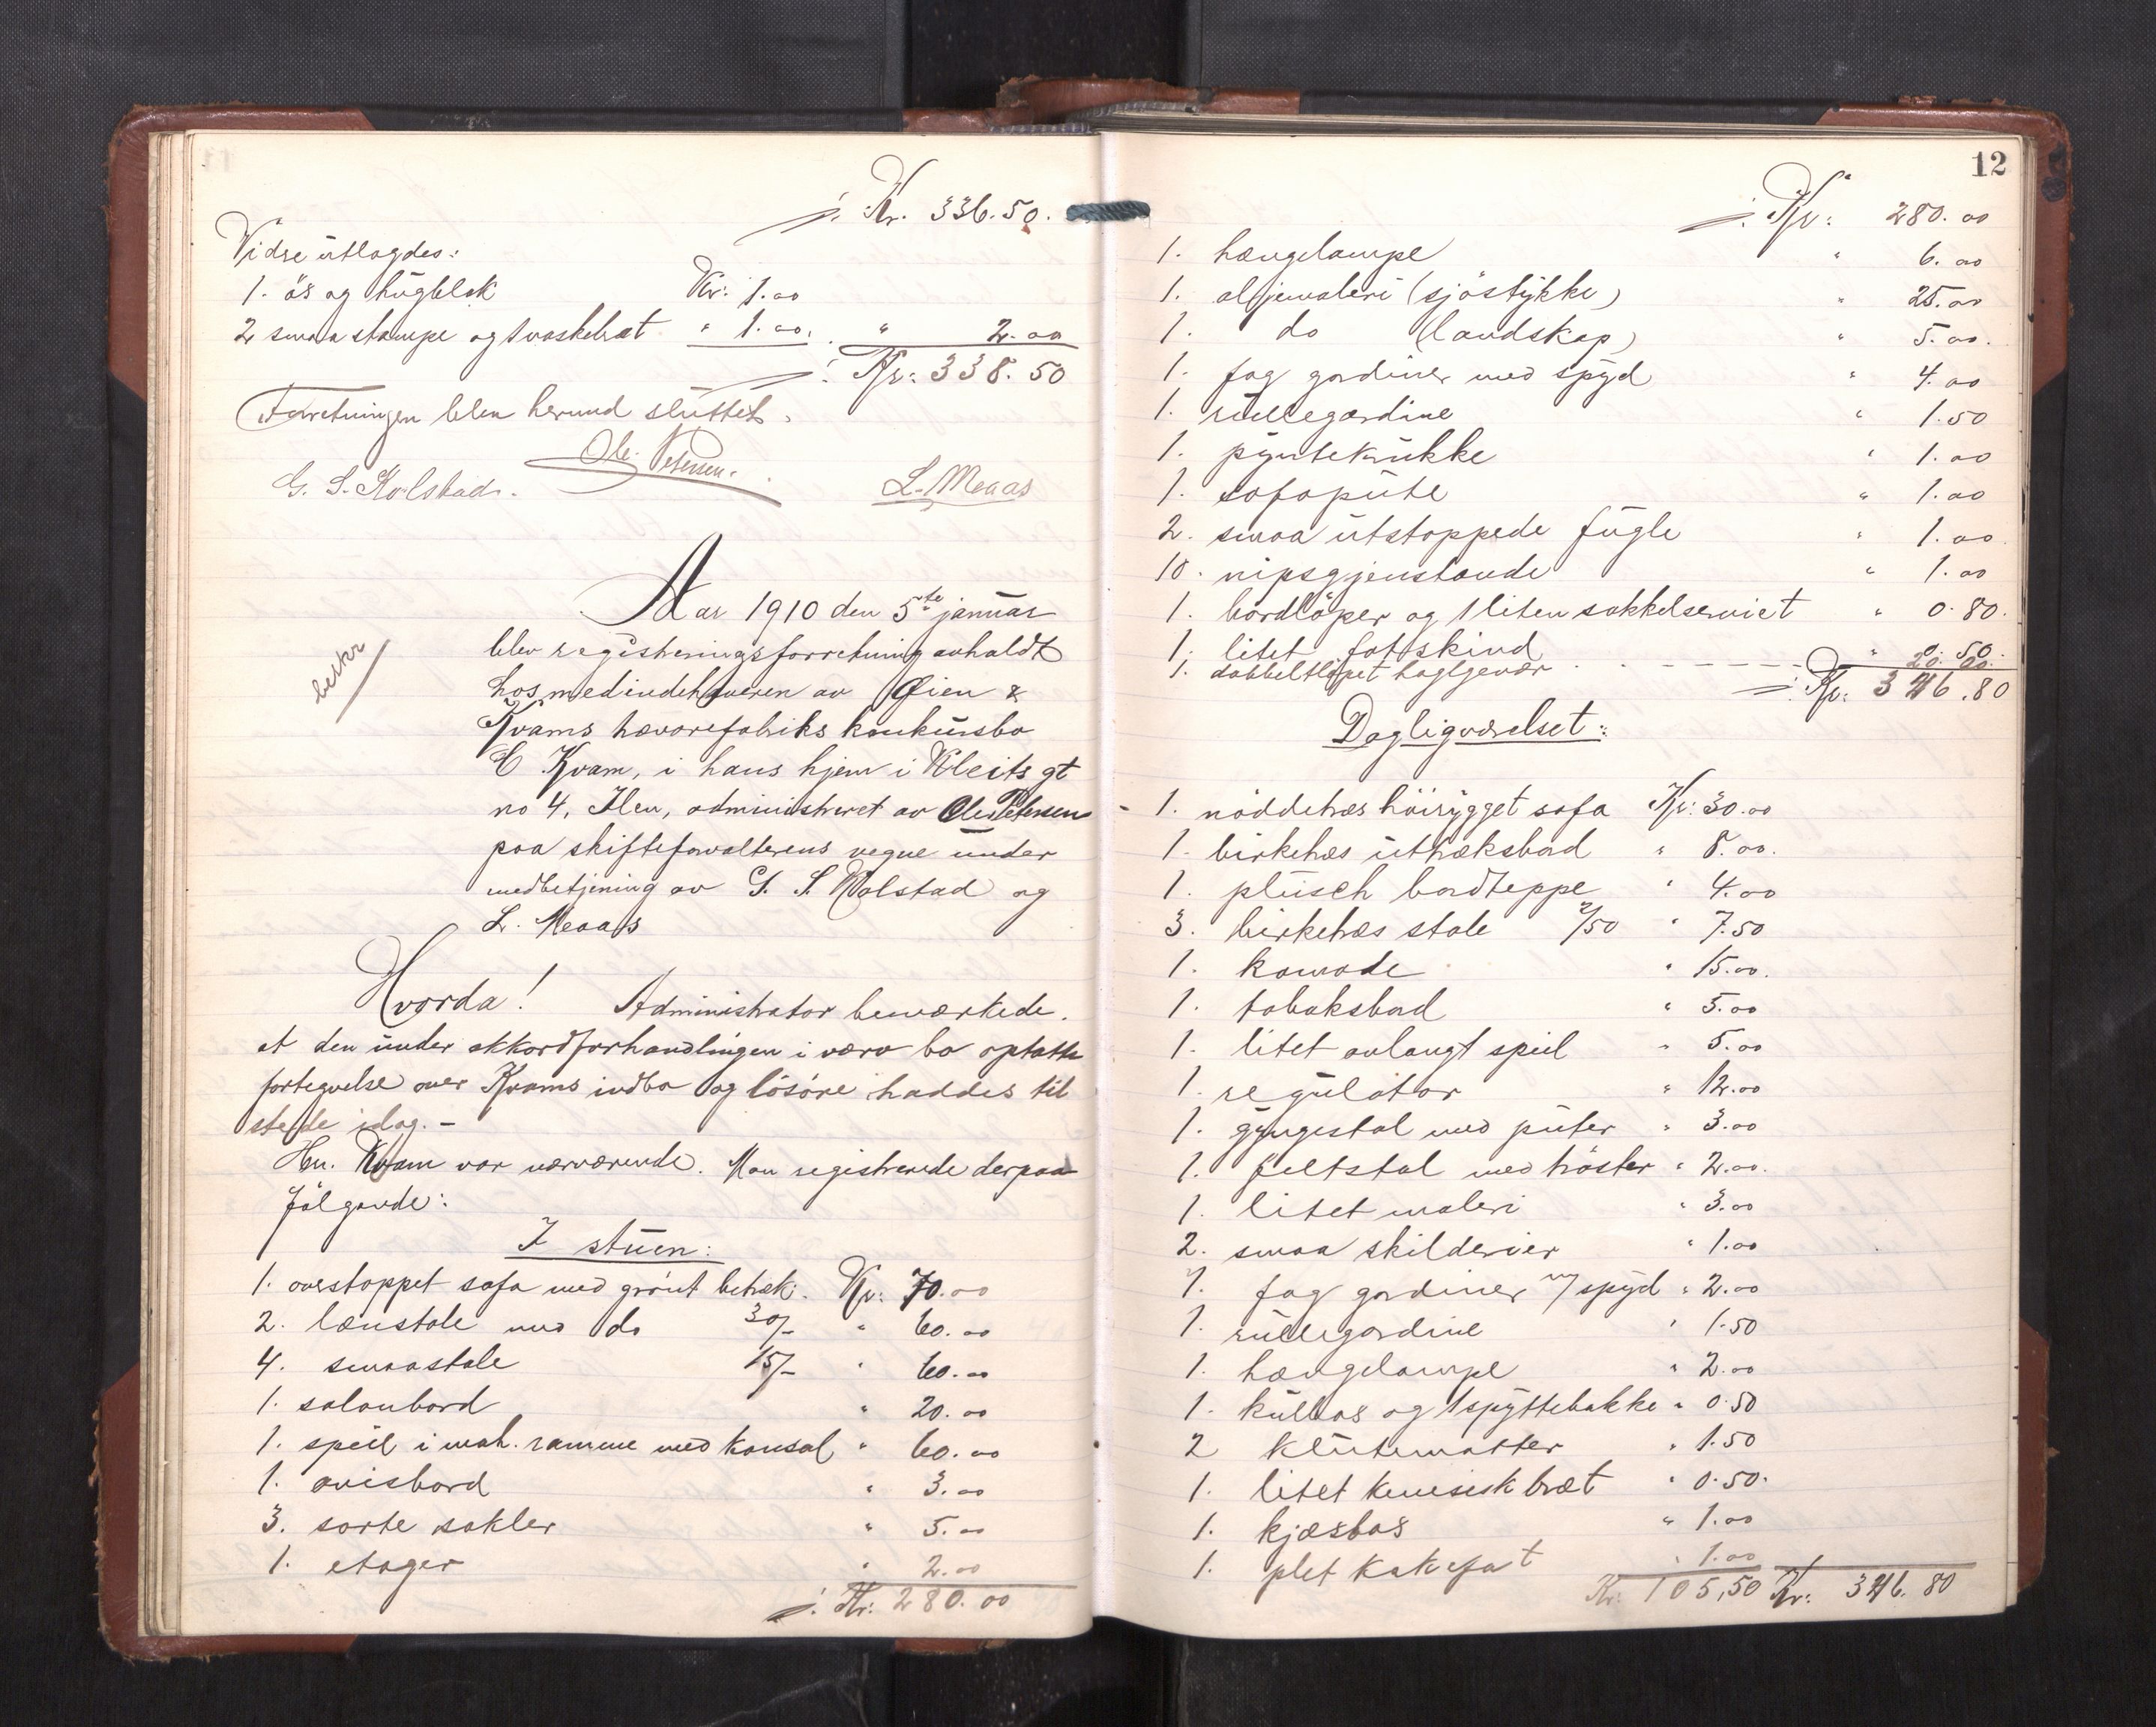 ⁒ Kr. 336.50.
Vidre utlagdes:
1. øs og hugblok Kr: 1.00
2 smaa stampe og 1 vaskebræt " 1.00. " 2.00
⁒ Kr: 338.50
Forretningen blev herund sluttet.
Ole Petersen.
G. S. Kolstad. L. Meaas
Aar 1910 den 5te januar
beskr
blev registreringsforretning avholdt
hos medindehaveren av Øien &
Kvams hævarefabriks konkursbo
C Kvam, i hans hjem i Kleists gt
no 4, Ilen, administreret av Ole Petersen
paa skifteforvalterens vegne under
medbetjening av G. S. Kolstad og
L. Meaas
Hvorda! Administrator bemærkede.
at den under akkordforhandlingen i være bo optatte
fortegnelse over Kvams indbo og løsøre haddes til
stede idag. -
Hr. Kvam var nærværende. Man registrerede derpaa
følgende:
I stuen:
1. overstoppet sofa med grønt betræk. Kr: 70.00
2. lænstole med do 30/- " 60.00
4. smaastole 15/- " 60.00
1. salonbord " 20.00
1. speil i mah. ramme med konsol " 60.00
1. avisbord " 3.00
3. sorte sokler " 5.00
1. etager " 2.00
⁒ Kr: 280.00
12
⁒ Kr: 280.00
1. hængelampe " 6.00
1. oljemaleri (sjøstykke) " 25.00
1. do (landskap) " 5.00.
1. fag gardiner med spyd " 4.00
1. rullegardine " 1.50
1. pyntekrukke " 1.00
1. sofapute " 1.00
2. smaa utstoppede fugle " 1.00
10. nipsgjenstande " 1.00
1. bordløper og 1 liten sokkelserviet " 0.80.
1. litet fotskind " 0.50.
1. dobbeltløpet haglgevær - - - - 20.00.
⁒ Kr: 346.80
Dagligværelset:
1. nøddetræs høirygget sofa Kr: 30.00
1. birketræs uttræksbord " 8.00.
1. plüsch bordteppe " 4.00
3. birketræs stole 2/50 " 7.50
1. komode " 15.00.
1. tobaksbord " 5.00
1. litet avlangt speil " 5.00
1. regulator " 12.00
1. gyngestol med puter " 3.00
1. feltstol med trøster " 2.00.
1. litet maleri " 3.00
2. smaa skilderier " 1.00
1. fag gardiner m/ spyd " 2.00
1. rullegardine " 1.50
1. hængelampe " 2.00
1. kulkas og 1 spyttebakke " 0.50
2 klutematter " 1.50
1. litet kinesisk bræt " 0.50.
1. kjæsbos " 1.00
1. plet kakefat " 1.00
Kr: 105,50 Kr: 346.80